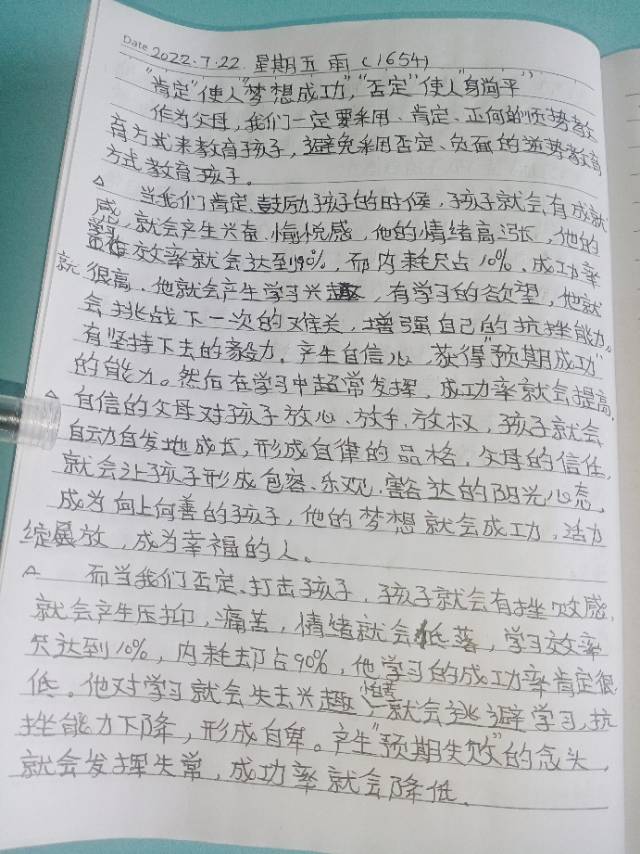 Date 2022.7.22 星期五 雨 (1654)
"肯定"使人"梦想成功","否定"使人"身尚平"
作为父母,我们一定要采用、肯定、正向的优势教
育方式来教育孩子,避免采用否定、负面的逆势教育
方式教育孩子。
△ 当我们肯定、鼓励孩子的时候,孩子就会有成就
感,就会产生兴奋、愉悦感,他的情绪高涨,他的
学习效率就会达到90%,而内耗只占10%、成功率
就很高、他就会产生学习兴趣,有学习的欲望,他就
会挑战下一次的难关,增强自己的抗挫能力。
有坚持下去的毅力,产生自信心,获得"预期成功"
的能力。然后在学习中超常发挥,成功率就会提高,
△ 自信的父母对孩子放心、放手,放权,孩子就会
自动自发地成长,形成自律的品格,父母的信任,
就会让孩子形成包容、乐观、豁达的阳光心态,
成为向上向善的孩子,他的梦想就会成功,活力
绽放,成为幸福的人。
△ 而当我们否定、打击孩子,孩子就会有挫败感,
就会产生压抑,痛苦,情绪就会低落,学习效率
只达到10%,内耗却占90%,他学习的成功率肯定很
低。他对学习就会失去兴趣,就会逃避学习,抗
挫能力下降,形成自卑。产生"预期失败"的念头,
就会发挥失常,成功率就会降低、